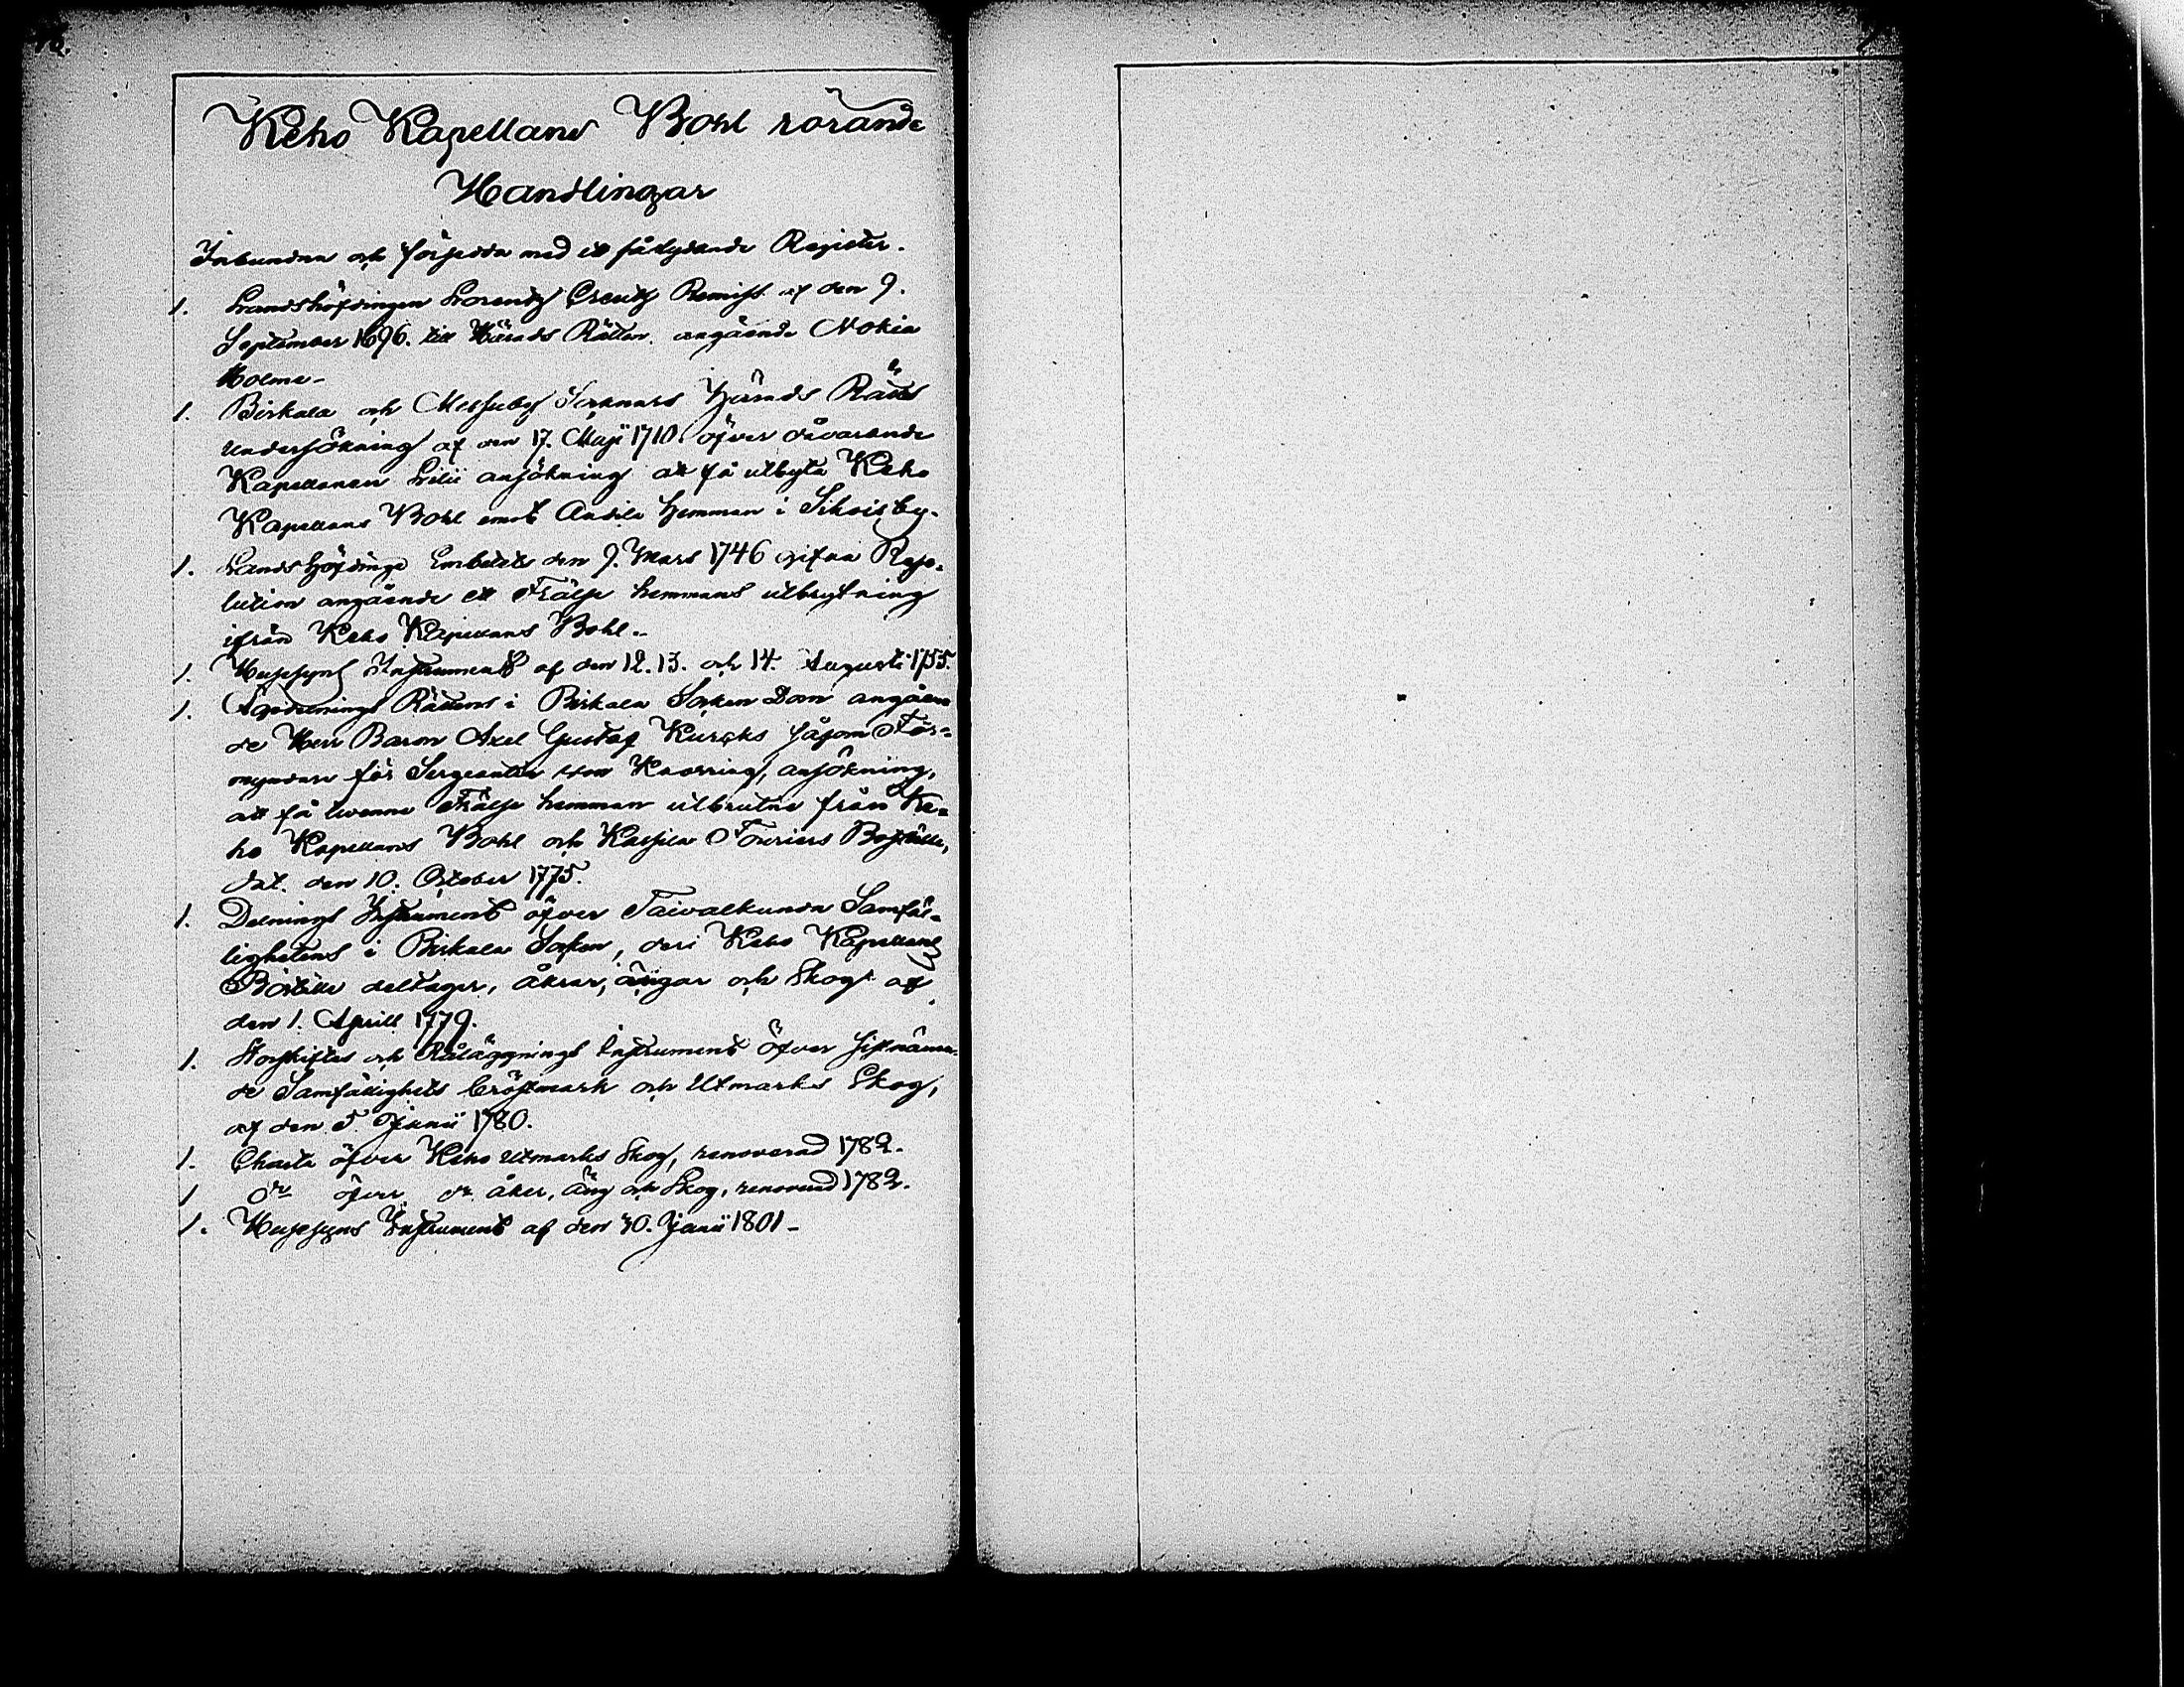 Keho Kapellans Bohl rörande
Handlingar
Inbundna och försedda med ett sålydande Register.
1. Landshöfdingen Lorentz Creutz Remiss af den 9.
September 1696. till Härads Rätten angående Nokia
Holme-
1. Birkala och Messuby Soknars Härads Rätts
undersökning af den 17. Maji 1710. öfver dåvarande
Kapellanen Lilii ansökning att få utbyta Keho
Kapellans Bohl emot Ansila Hemman i Sikois by.
1. Landshöfdinge Embetets den 9. Mars 1746 gifna Reso-
lution angående ett Frälse hemmans utbrytning
ifrån Keho Kapellans Bohl.-
1. Husesyns Instrument af den 12. 13. och 14. Augusti 1755.
1. Ägodelnings Rättens i Birkala Socken Dom angåen
de Herr Baron Axel Gustaf Kurcks såsom För-
myndare för Sergeanten von Knorring, ansökning,
att få tvenne Frälse hemman utbrutne från Ke-
ho Kapellans Bohl och Kassila Fouriers Boställe,
dat. den 10. October 1775.
1. Delnings Instrument öfver Taivalkunda Samfäl-
lighetens i Birkala Socken, deri Keho Kapellans
Boställe deltager, åkrar, ängar och Skog af
den 1. Aprill 1779.
1. Storskiftes och Råläggnings Instrument öfver sistnämn-
de Samfällighets Cröstmark och Utmarks Skog,
af den 5. Junii 1780.
1. Charta öfver Keho utmarks Skog, renoverad 1782.
1 do öfver do åker, äng och Skog, renoverad 1782.
1. Husesyns Instrument af den 30. Junii 1801-